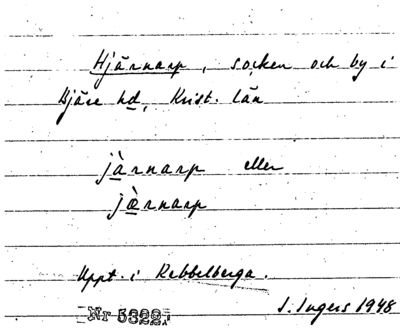 Hjärnarp, socken och by i
Bjäre hd, Krist. län
jàrnarp eller
jæ̀rnarp
Uppt. i Rebbelberga.
Nr 5322. I. Ingers 1948